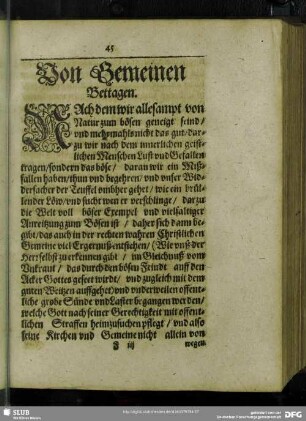 45
Von Gemeinen
Bettagen.
NAch dem wir allesampt von
Natur zum bösen geneigt seind/
vnd mehrmahls nicht das gut/dar-
zu wir nach dem innerlichen geist-
lichen Menschen Lust vnd Gefallen
tragen/sondern das böse/ daran wir ein Miß-
fallen haben/thun vnd begehren/ vnd vnser Wid-
dersacher der Teuffel vmbher gehet/ wie ein brül-
lender Löw/vnd sucht wen er verschlinge/ dar zu
die Welt voll böser Exempel vnd vielfaltiger
Anreitzung zum Bösen ist/ daher sich dann be-
gibt/das auch in der rechten wahren Christlichen
Gemeine viel Ergernuß entstehen/(Wie vnß der
Herr selbst zu erkennen gibt/ im Gleichnuß vom
Vnkraut/ das durch den bösen Feindt auff den
Acker Gottes geseet wirdt/ vnd zugleich mit dem
guten Weitzen auffgehet) vnd vnderweilen offent-
liche grobe Sünde vnd Laster begangen werden/
welche Gott nach seiner Gerechtigkeit mit offent-
lichen Straffen heimzusuchen pflegt/ vnd also
seine Kirchen vnd Gemeine nicht allein von
F iij
wegen
SLUB
DFG